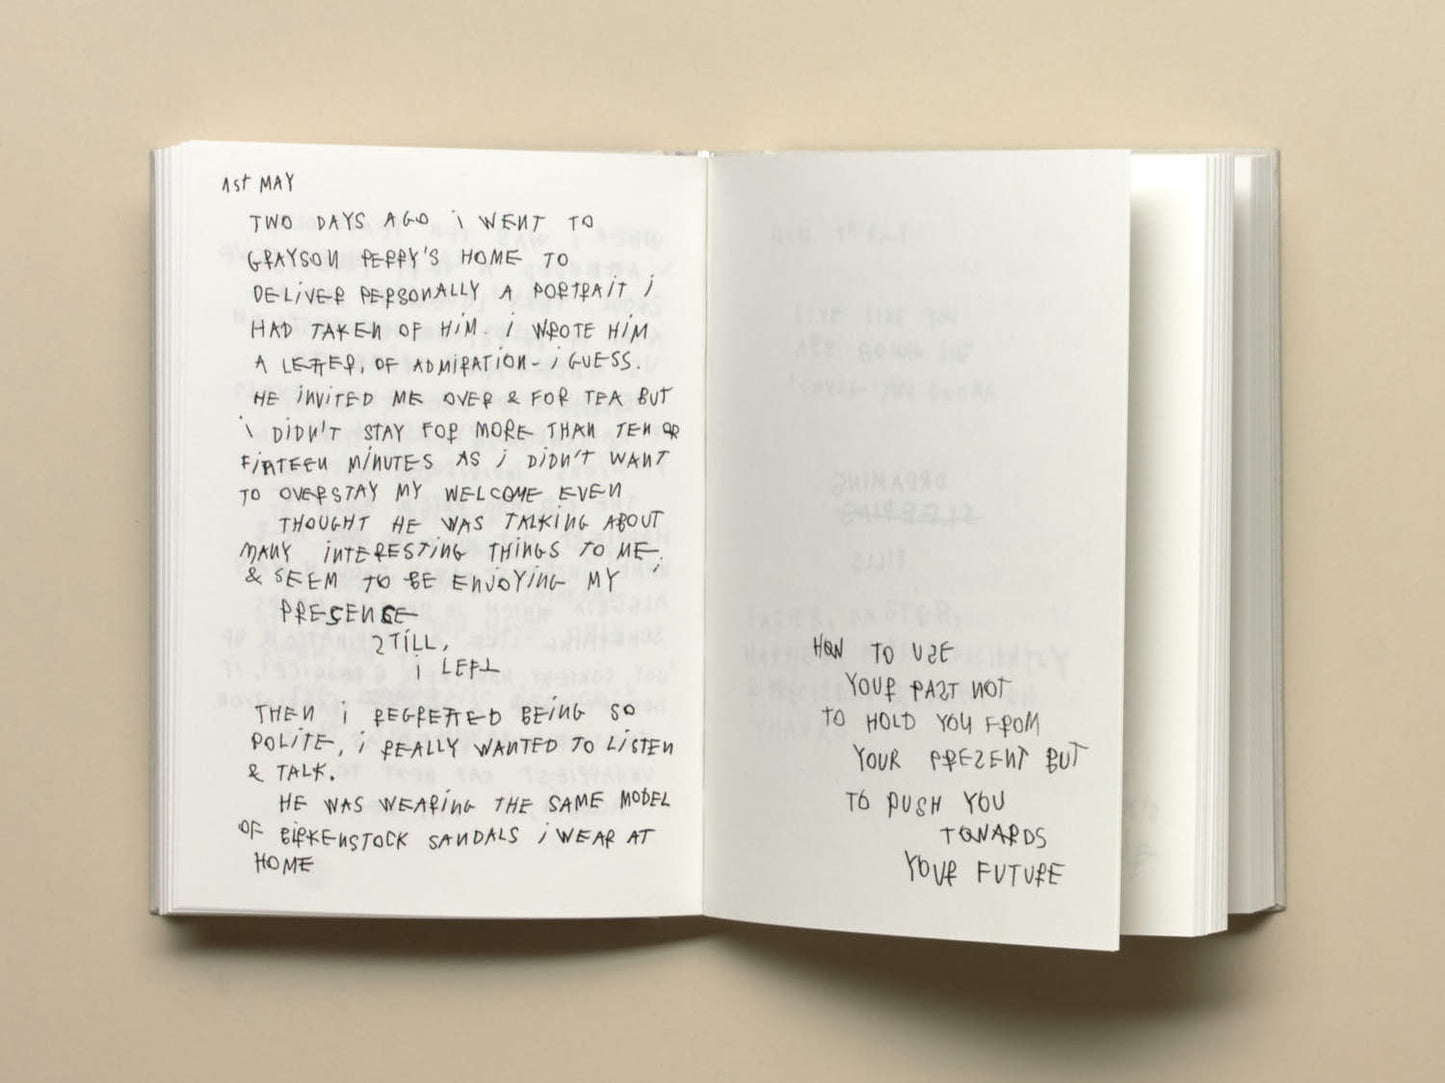 1st MAY
TWO DAYS AGO i WENT TO
GRAYSON PERRY'S HOME TO
DELiVER PERSONALLY A PORTRAiT i
HAD TAKEN OF HiM. i WROTE HiM
A LETTER, OF ADMiRATiON - i GUESS.
HE iNViTED ME OVER & FOR TEA BUT
i DiDN'T STAY FOR MORE THAN TEN OR
FiFTEEN MiNUTES AS i DiDN'T WANT
TO OVERSTAY MY WELCOME EVEN
THOUGHT HE WAS TALKiNG ABOUT
MANY iNTERESTiNG THiNGS TO ME,
& SEEM TO BE ENJOYiNG MY
PRESENCE
STiLL,
i LEFT
THEN i REGRETTED BEiNG SO
POLiTE, i REALLY WANTED TO LiSTEN
& TALK.
HE WAS WEARiNG THE SAME MODEL
OF BiRKENSTOCK SANDALS i WEAR AT
HOME
HOW TO USE
YOUR PAST NOT
TO HOLD YOU FROM
YOUR PRESENT BUT
TO PUSH YOU
TOWARDS
YOUR FUTURE